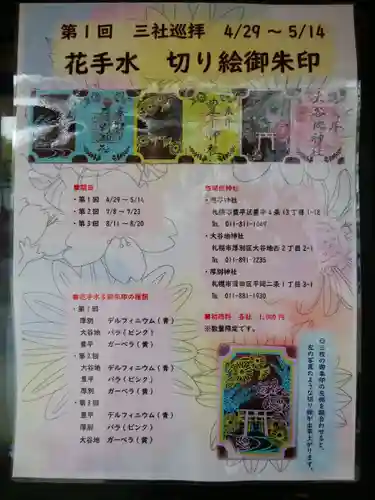 第1回 三社巡拝 4/29 ～ 5/14
花手水 切り絵御朱印
■期日
・第1回 4/29～5/14
・第2回 7/8～7/23
・第3回 8/11～8/20
■花手水&御朱印の種類
・第1回
厚別 デルフィニウム(青)
大谷地 バラ(ピンク)
豊平 ガーベラ(黄)
・第2回
大谷地 デルフィニウム(青)
豊平 バラ(ピンク)
厚別 ガーベラ(黄)
・第3回
豊平 デルフィニウム(青)
厚別 バラ(ピンク)
大谷地 ガーベラ(黄)
神社
札幌市豊平区豊平4条13丁目1-18
TEL 011-811-1049
・大谷地神社
札幌市厚別区大谷地西2丁目2-1
TEL 011-891-2235
・厚別神社
札幌市清田区平岡2条1丁目3-1
TEL 011-881-1930
■初穂料 各社 1,000円
※数量限定です。
◎三枚の御朱印の反対を組合わせると、
左の写真のような切り絵が出来上がります。